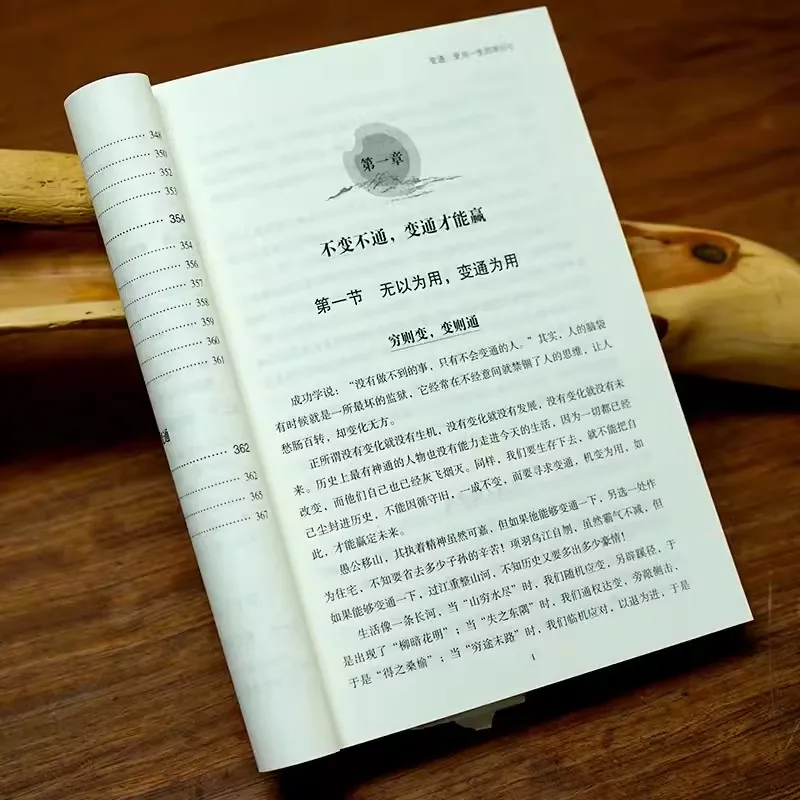 348
350
352
353
354
354
356
357
358
359
360
361
通
362
362
365
367
变通：受用一生的学问
第一章
不变不通，变通才能赢
第一节 无以为用，变通为用
穷则变，变则通
成功学说：“没有做不到的事，只有不会变通的人。”其实，人的脑袋
有时候就是一所最坏的监狱，它经常在不经意间就禁锢了人的思维，让人
愁肠百转，却变化无方。
正所谓没有变化就没有生机，没有变化就没有发展，没有变化就没有未
来。历史上最有神通的人物也没有能力走进今天的生活，因为一切都已经
改变，而他们自己也已经灰飞烟灭。同样，我们要生存下去，就不能把自
己尘封进历史，不能因循守旧，一成不变，而要寻求变通，机变为用，如
此，才能赢定未来。
愚公移山，其执着精神虽然可嘉，但如果他能够变通一下，另选一处作
为住宅，不知要省去多少子孙的辛苦！项羽乌江自刎，虽然霸气不减，但
如果能够变通一下，过江重整山河，不知历史又要多出多少豪情！
生活像一条长河，当“山穷水尽”时，我们随机应变，另辟蹊径，于
是出现了“柳暗花明”；当“失之东隅”时，我们通权达变，旁敲侧击，
于是“得之桑榆”；当“穷途末路”时，我们临机应对，以退为进，于是
1